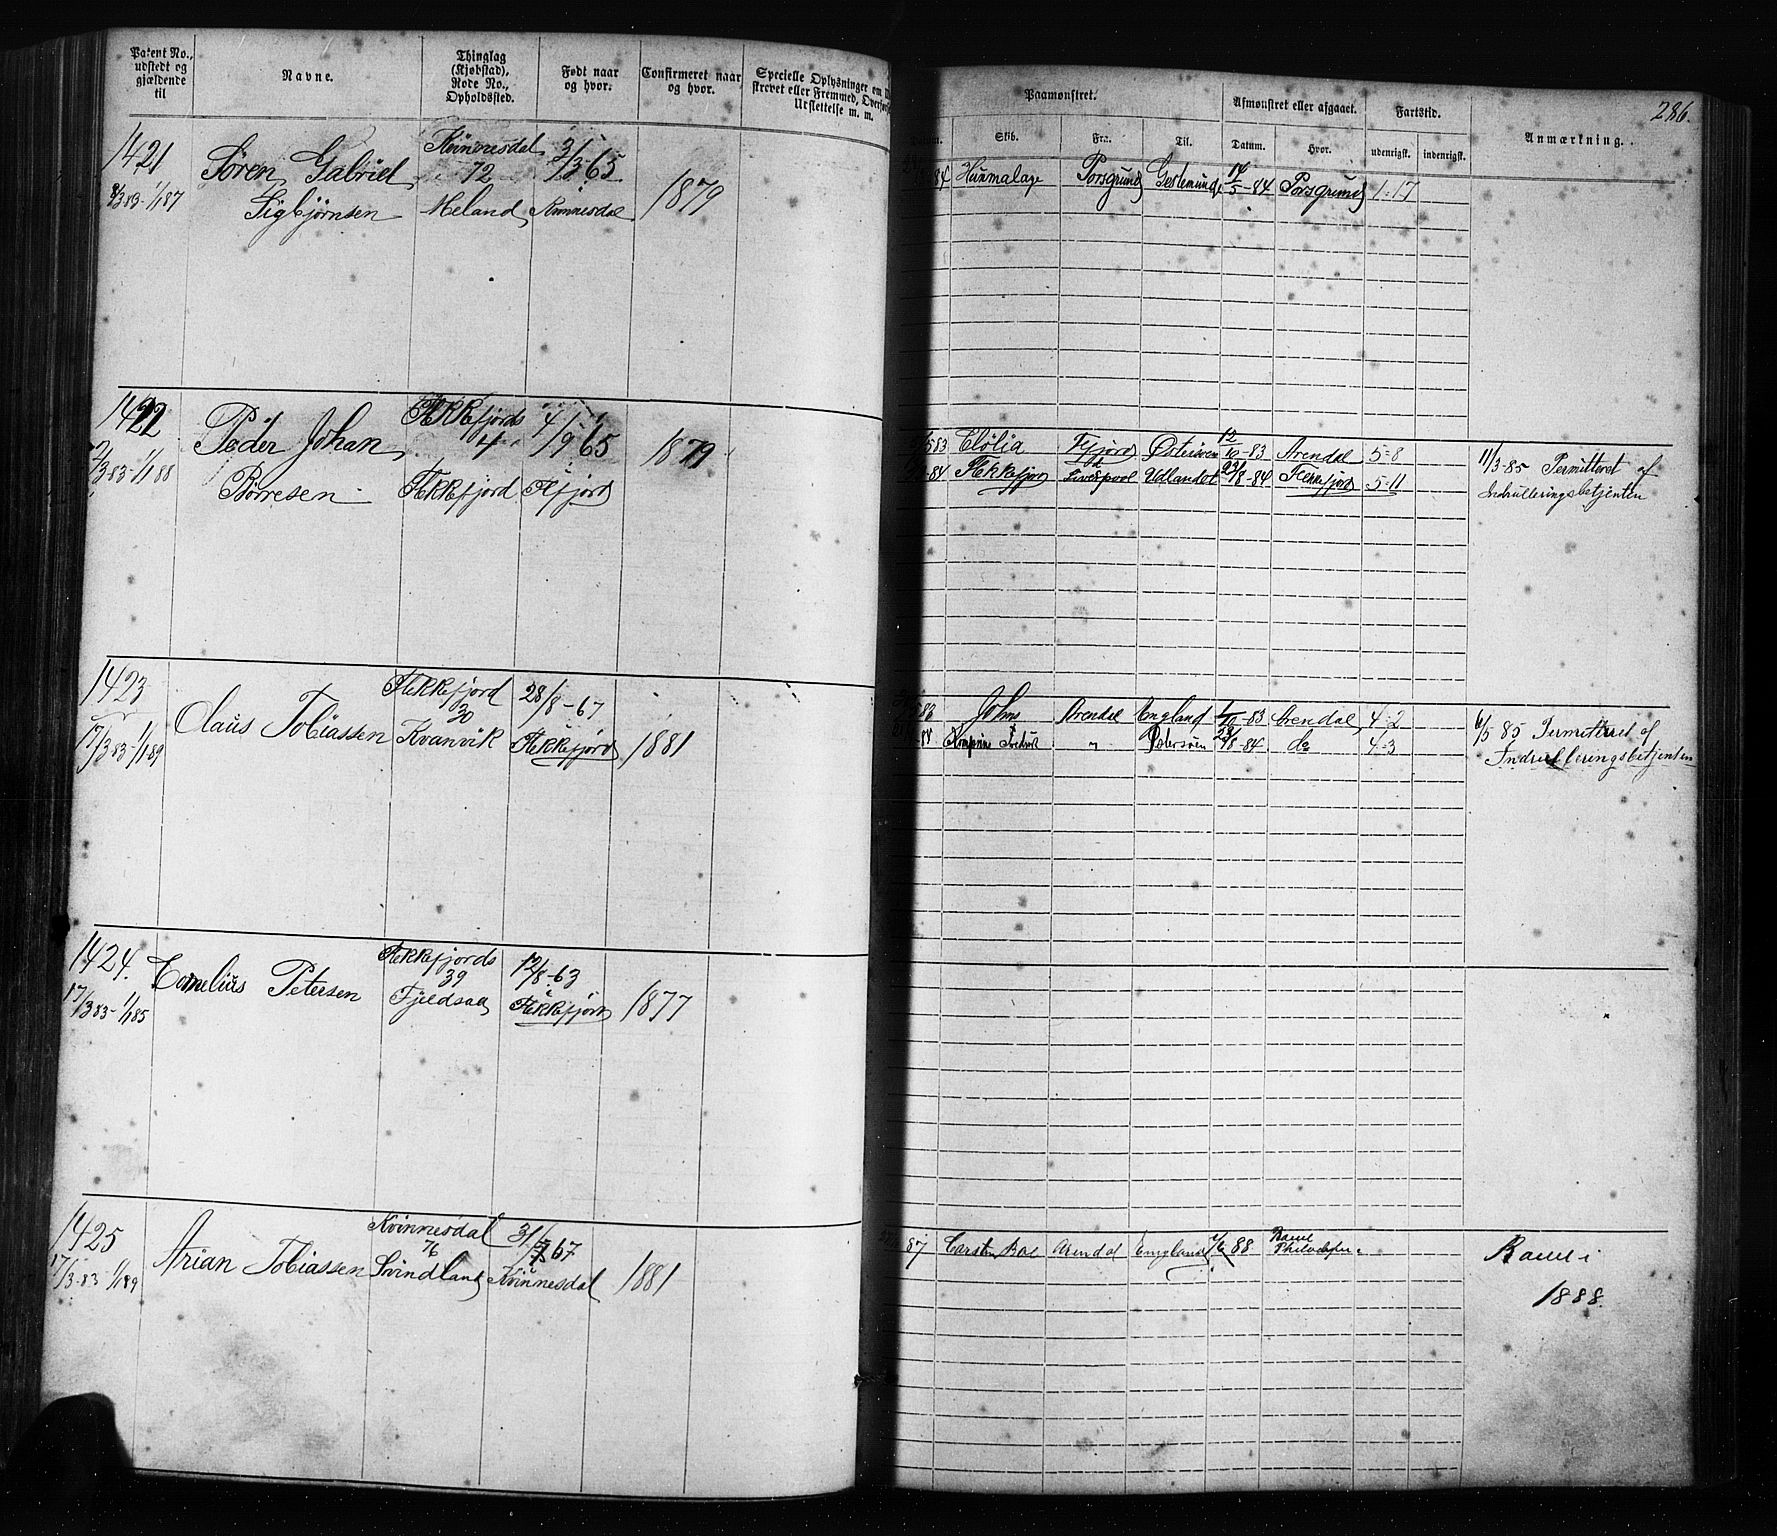 Patent No., udstedt og gjældende til
Navne.
Thinglag (Kjøbstad), Rode No., Opholdssted.
Født naar og hvor.
Confirmeret naar og hvor.
Specielle Oplysninger om
skrevet eller Fremmed, Overfø
Udslettelse m. m.
Paamønstret.
Afmønstret eller afgaaet.
Fartstid.
286.
Datum.
Skib.
Fra.
Til.
Datum.
Hvor.
udenrigsk.
indenrigsk.
Anmærkning.
1421
8/3 83 - 1/1 87
Søren Gabriel
Sigbjørnsen
Kvinnesdal
72
Meland
3/3 65
Kvinnesdal
1879
84
Porsgrund
Gestemünde
14/5 - 84
Porsgrund
1 : 17
1422
/3 83 - 1/1 88
Peder Johan
Børresen
Flekkefjords
4
Flekkefjord
4/9 65
Ffjord
1879
83
Clølia
Ffjord
Østersøen
12/10 - 83
Arendal
5 = 8
84
Flekkefjord
Liverpool
Udlandet
23/8 - 84
Flekkefjord
5 = 11
11/3 - 85 Permitteret af
Indrulleringsbetjenten
1423
17/3 83 - 1/1 89
Claus Tobiassen
Flekkefjord
30
Kvanvik
28/8 - 67
Flekkefjord
1881
83
Johns
Arendal
England
1/10 - 83
Arendal
4 = 2
84
"
Østersøen
28/8 - 84
do
4 = 3
6/5 85 Permitteret af
Indrulleringsbetjenten
1424.
17/3 83 - 1/1 85
Cornelius Petersen
Flekkefjords
39
Fjeldsaa
12/8 - 63
Flekkefjord
1877
1425
17/3 - 83 - 1/1 89
Arian Tobiassen
Kvinnesdal
76
Svindland
3/ 67
Kvinnesdal
1881
87
Carsten Boe
Arendal
England
88
Rømt
Philadelphia
Rømt i
1888.